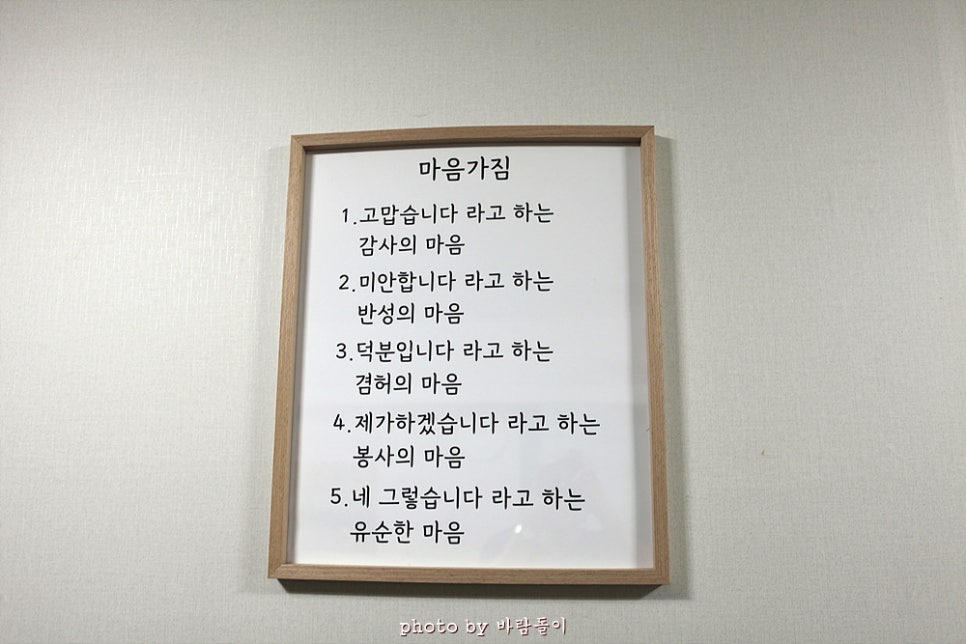 마음가짐
1.고맙습니다 라고 하는
감사의 마음
2.미안합니다 라고 하는
반성의 마음
3.덕분입니다 라고 하는
겸허의 마음
4.제가하겠습니다 라고 하는
봉사의 마음
5.네 그렇습니다 라고 하는
유순한 마음
photo by 바람돌이